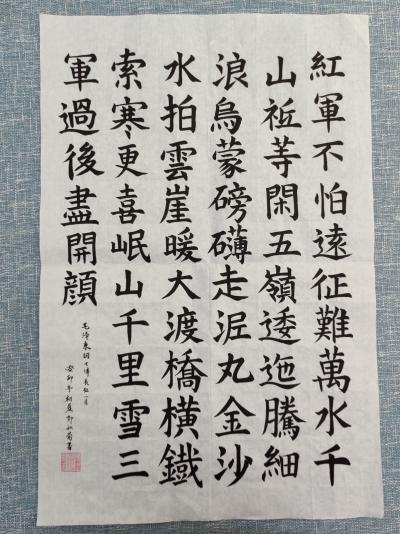 紅軍不怕遠征難萬水千
山祗等閑五嶺逶迤騰細
浪烏蒙磅礴走泥丸金沙
水拍雲崖暖大渡橋橫鐵
索寒更喜岷山千里雪三
軍過後盡開顔
毛澤東詞七律長征一首
癸卯年初夏